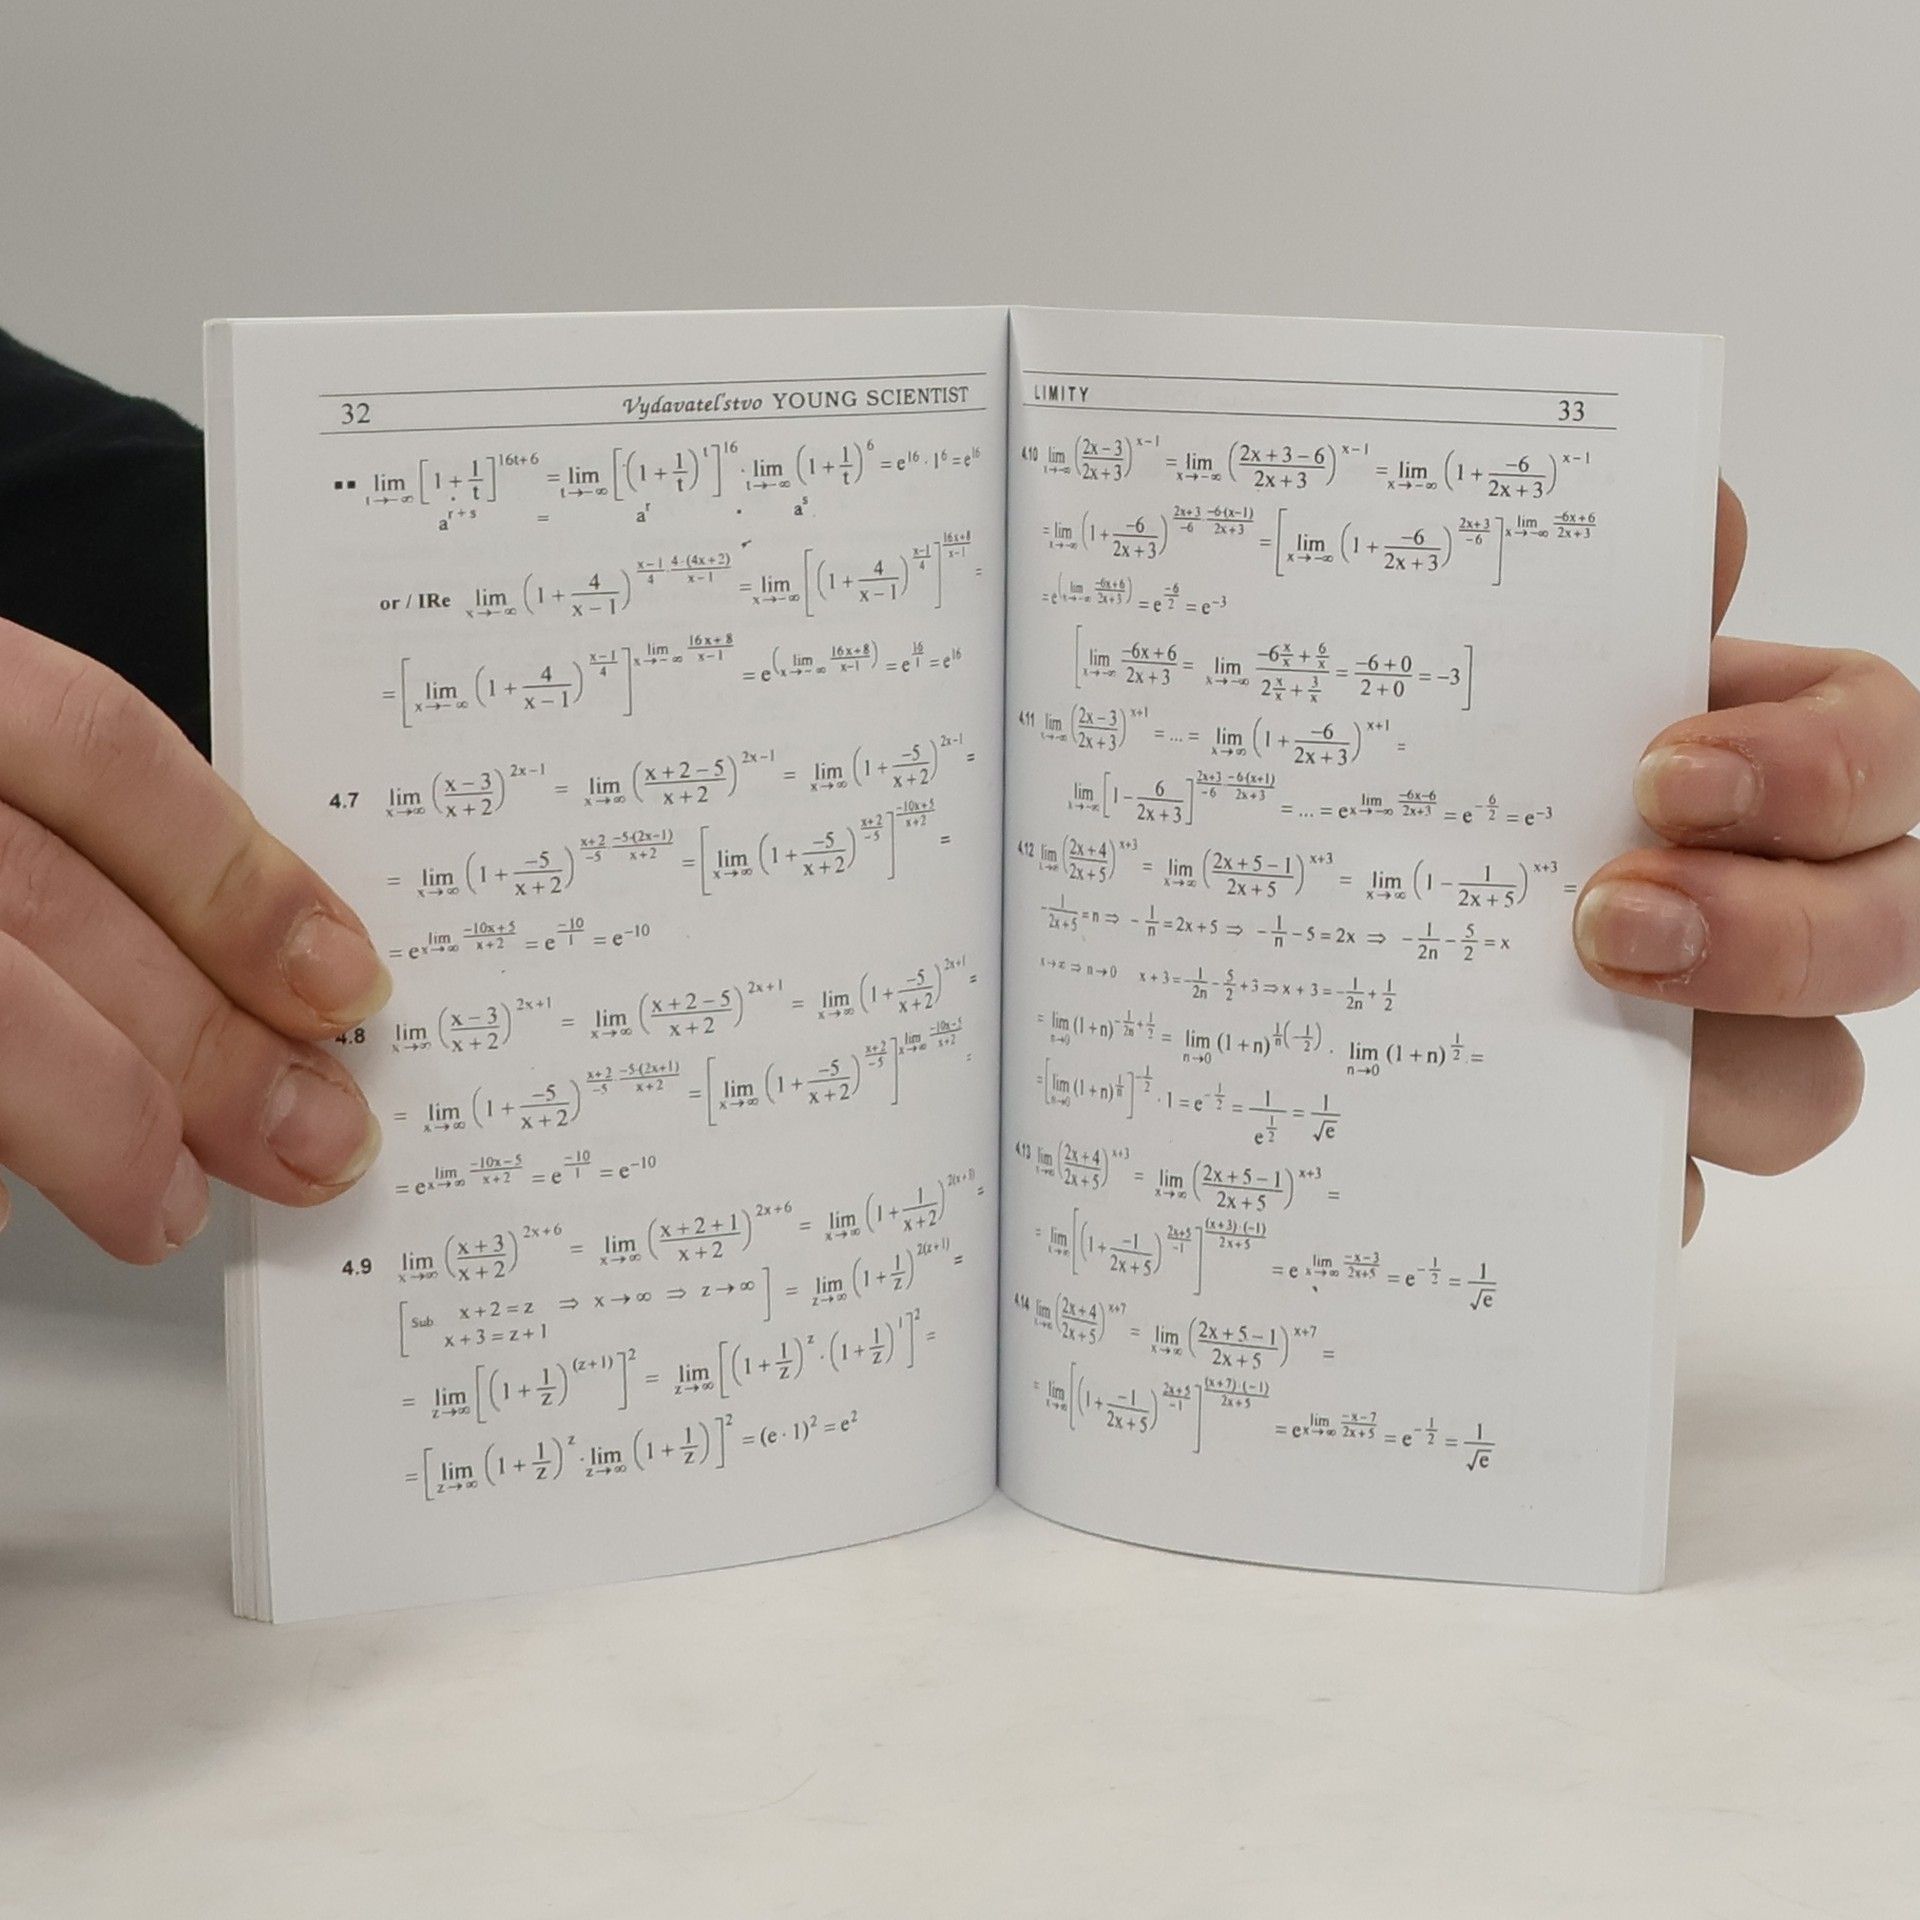 32 Vydavateľstvo YOUNG SCIENTIST
▪▪ lim t→−∞ [1 + 1/t]^(16t+6) = lim t→−∞ [(1 + 1/t)^t]^16 · lim t→−∞ (1 + 1/t)^6 = e^16 · 1^6 = e^16
a^(r+s) = a^r · a^s
or / IRe lim x→−∞ (1 + 4/(x−1))^((x−1)/4 · 4·(4x+2)/(x−1)) = lim x→−∞ [(1 + 4/(x−1))^((x−1)/4)]^((16x+8)/(x−1)) =
= [lim x→−∞ (1 + 4/(x−1))^((x−1)/4)]^(lim x→−∞ (16x+8)/(x−1)) = e^(lim x→−∞ (16x+8)/(x−1)) = e^(16/1) = e^16
4.7 lim x→∞ ((x−3)/(x+2))^(2x−1) = lim x→∞ ((x+2−5)/(x+2))^(2x−1) = lim x→∞ (1 + −5/(x+2))^(2x−1) =
= lim x→∞ (1 + −5/(x+2))^((x+2)/−5 · −5·(2x−1)/(x+2)) = [lim x→∞ (1 + −5/(x+2))^((x+2)/−5)]^((−10x+5)/(x+2)) =
= e^(lim x→∞ (−10x+5)/(x+2)) = e^(−10/1) = e^−10
4.8 lim x→∞ ((x−3)/(x+2))^(2x+1) = lim x→∞ ((x+2−5)/(x+2))^(2x+1) = lim x→∞ (1 + −5/(x+2))^(2x+1) =
= lim x→∞ (1 + −5/(x+2))^((x+2)/−5 · −5·(2x+1)/(x+2)) = [lim x→∞ (1 + −5/(x+2))^((x+2)/−5)]^(lim x→∞ (−10x−5)/(x+2)) =
= e^(lim x→∞ (−10x−5)/(x+2)) = e^(−10/1) = e^−10
4.9 lim x→∞ ((x+3)/(x+2))^(2x+6) = lim x→∞ ((x+2+1)/(x+2))^(2x+6) = lim x→∞ (1 + 1/(x+2))^(2(x+3)) =
[Sub x+2 = z ⇒ x→∞ ⇒ z→∞ ] = lim z→∞ (1 + 1/z)^(2(z+1)) =
x+3 = z+1
= lim z→∞ [(1 + 1/z)^(z+1)]^2 = lim z→∞ [(1 + 1/z)^z · (1 + 1/z)^1]^2 =
= [lim z→∞ (1 + 1/z)^z · lim z→∞ (1 + 1/z)]^2 = (e · 1)^2 = e^2
LIMITY 33
4.10 lim x→−∞ ((2x−3)/(2x+3))^(x−1) = lim x→−∞ ((2x+3−6)/(2x+3))^(x−1) = lim x→−∞ (1 + −6/(2x+3))^(x−1)
= lim x→−∞ (1 + −6/(2x+3))^((2x+3)/−6 · −6·(x−1)/(2x+3)) = [lim x→−∞ (1 + −6/(2x+3))^((2x+3)/−6)]^(lim x→−∞ (−6x+6)/(2x+3))
= e^(lim x→−∞ (−6x+6)/(2x+3)) = e^(−6/2) = e^−3
[lim x→−∞ (−6x+6)/(2x+3) = lim x→−∞ (−6 x/x + 6/x)/(2 x/x + 3/x) = (−6+0)/(2+0) = −3]
4.11 lim x→−∞ ((2x−3)/(2x+3))^(x+1) = ... = lim x→∞ (1 + −6/(2x+3))^(x+1) =
lim x→−∞ [1 − 6/(2x+3)]^((2x+3)/−6 · −6·(x+1)/(2x+3)) = ... = e^(lim x→−∞ (−6x−6)/(2x+3)) = e^(−6/2) = e^−3
4.12 lim x→∞ ((2x+4)/(2x+5))^(x+3) = lim x→∞ ((2x+5−1)/(2x+5))^(x+3) = lim x→∞ (1 − 1/(2x+5))^(x+3) =
−1/(2x+5) = n ⇒ −1/n = 2x+5 ⇒ −1/n − 5 = 2x ⇒ −1/2n − 5/2 = x
x→∞ ⇒ n→0 x+3 = −1/2n − 5/2 + 3 ⇒ x+3 = −1/2n + 1/2
= lim n→0 (1+n)^(−1/2n + 1/2) = lim n→0 (1+n)^(1/n (−1/2)) · lim n→0 (1+n)^(1/2) =
= [lim n→0 (1+n)^(1/n)]^(−1/2) · 1 = e^(−1/2) = 1/e^(1/2) = 1/√e
4.13 lim x→∞ ((2x+4)/(2x+5))^(x+3) = lim x→∞ ((2x+5−1)/(2x+5))^(x+3) =
= lim x→∞ [(1 + −1/(2x+5))^((2x+5)/−1)]^((x+3)·(−1)/(2x+5)) = e^(lim x→∞ (−x−3)/(2x+5)) = e^(−1/2) = 1/√e
4.14 lim x→∞ ((2x+4)/(2x+5))^(x+7) = lim x→∞ ((2x+5−1)/(2x+5))^(x+7) =
= lim x→∞ [(1 + −1/(2x+5))^((2x+5)/−1)]^((x+7)·(−1)/(2x+5)) = e^(lim x→∞ (−x−7)/(2x+5)) = e^(−1/2) = 1/√e